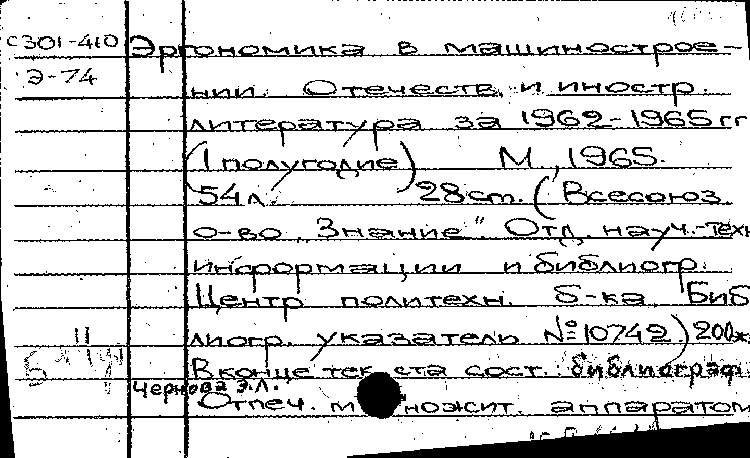 С301-410
Э-74
Эргономика в машинострое-
нии. Отечеств. и иностр.
литература за 1962-1965 гг
(I полугодие) М., 1965.
54л. 28cm. (Всесоюз.
о-во „Знание". Отд. науч.-техн
информации и библиогр.
Центр политехн. б-ка. Биб
лиогр. указатель №10742) 200
В конце текста сост. библиограф
Чернова Э.Л.
Отпеч. множит. аппаратом